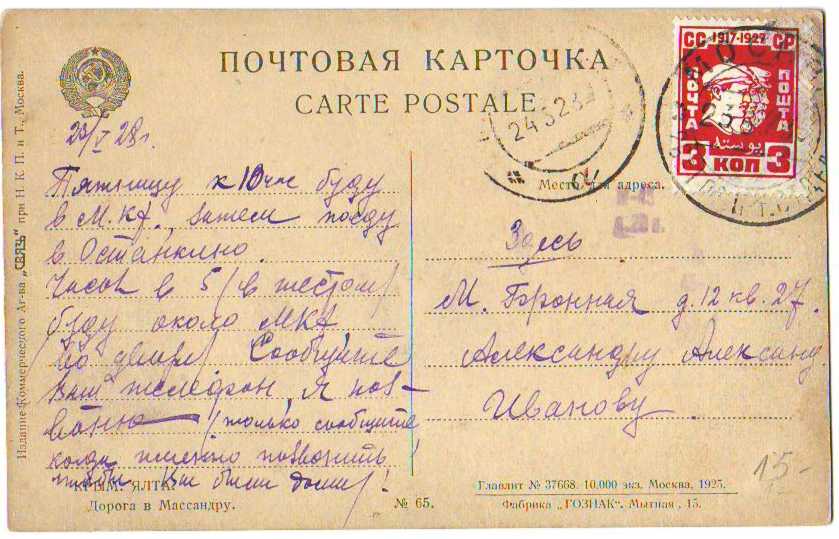 ПОЧТОВАЯ КАРТОЧКА
CARTE POSTALE
СС 1917-1927 СР
ПОЧТА
ПОШТА
3 КОП 3
МОСКВА
24 5 28
23/V 28 г.
Пятницу к 10 час буду
в МКХ, затем поеду
в Останкино.
Часов в 5 (в шестом)
буду около МКХ
во дворе. Сообщите
Ваш телефон, Я поз-
воню (только сообщите
когда именно позвонить!
чтобы Вы были дома)!
Место для адреса.
Здесь
М. Бронная д. 12 кв. 27.
Александру Александ
Иванову.
КРЫМ. ЯЛТА.
Дорога в Массандру.
№ 65.
Главлит № 37668. 10.000 экз. Москва, 1925.
Фабрика „ГОЗНАК“. Мытная, 15.
Издание Коммерческого Аг-ва „СВЯЗЬ“ при Н. К. П. и Т., Москва.
15-